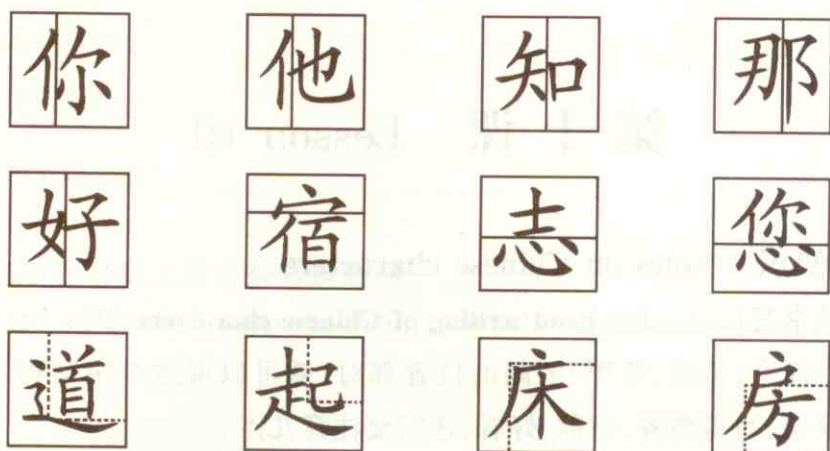 你 他 知 那
好 宿 志 您
道 起 床 房